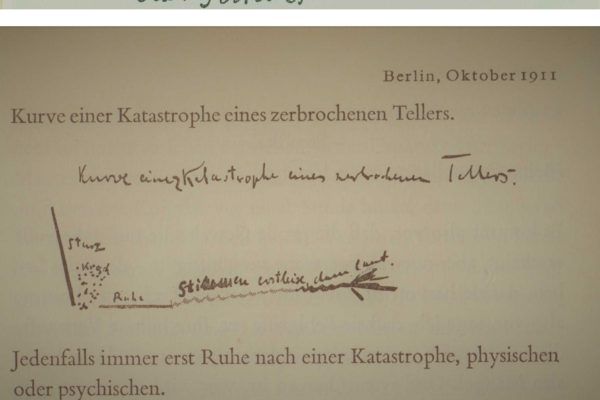 Berlin, Oktober 1911
Kurve einer Katastrophe eines zerbrochenen Tellers.
Kurve einer Katastrophe eines zerbrochenen Tellers.
Sturz
Krach
Ruhe
Stimmen erst leise, dann laut.
Jedenfalls immer erst Ruhe nach einer Katastrophe, physischen
oder psychischen.